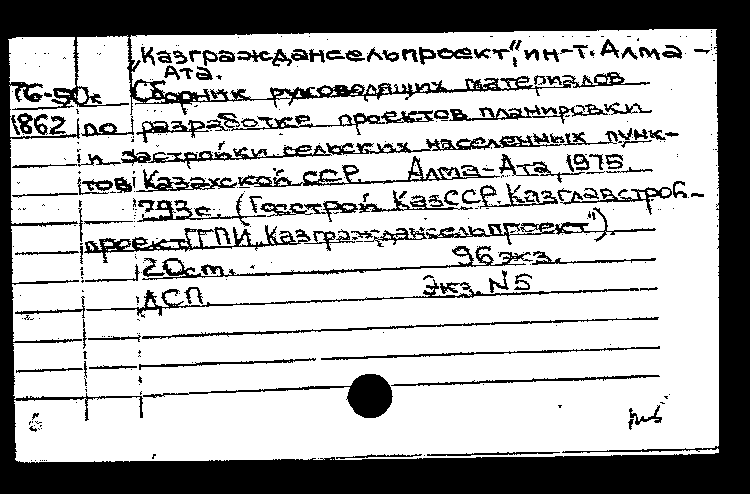 „Казграждансельпроект", ин-т. Алма-
Ата.
76-50к Сборник руководящих материалов
1862 по разработке проектов планировки
и застройки сельских населенных пунк-
тов Казахской ССР. Алма-Ата, 1975.
293с. (Госстрой КазССР. Казглавстрой-
проект. ГПИ „Казграждансельпроект").
20см. 96экз.
ДСП. Экз. N5